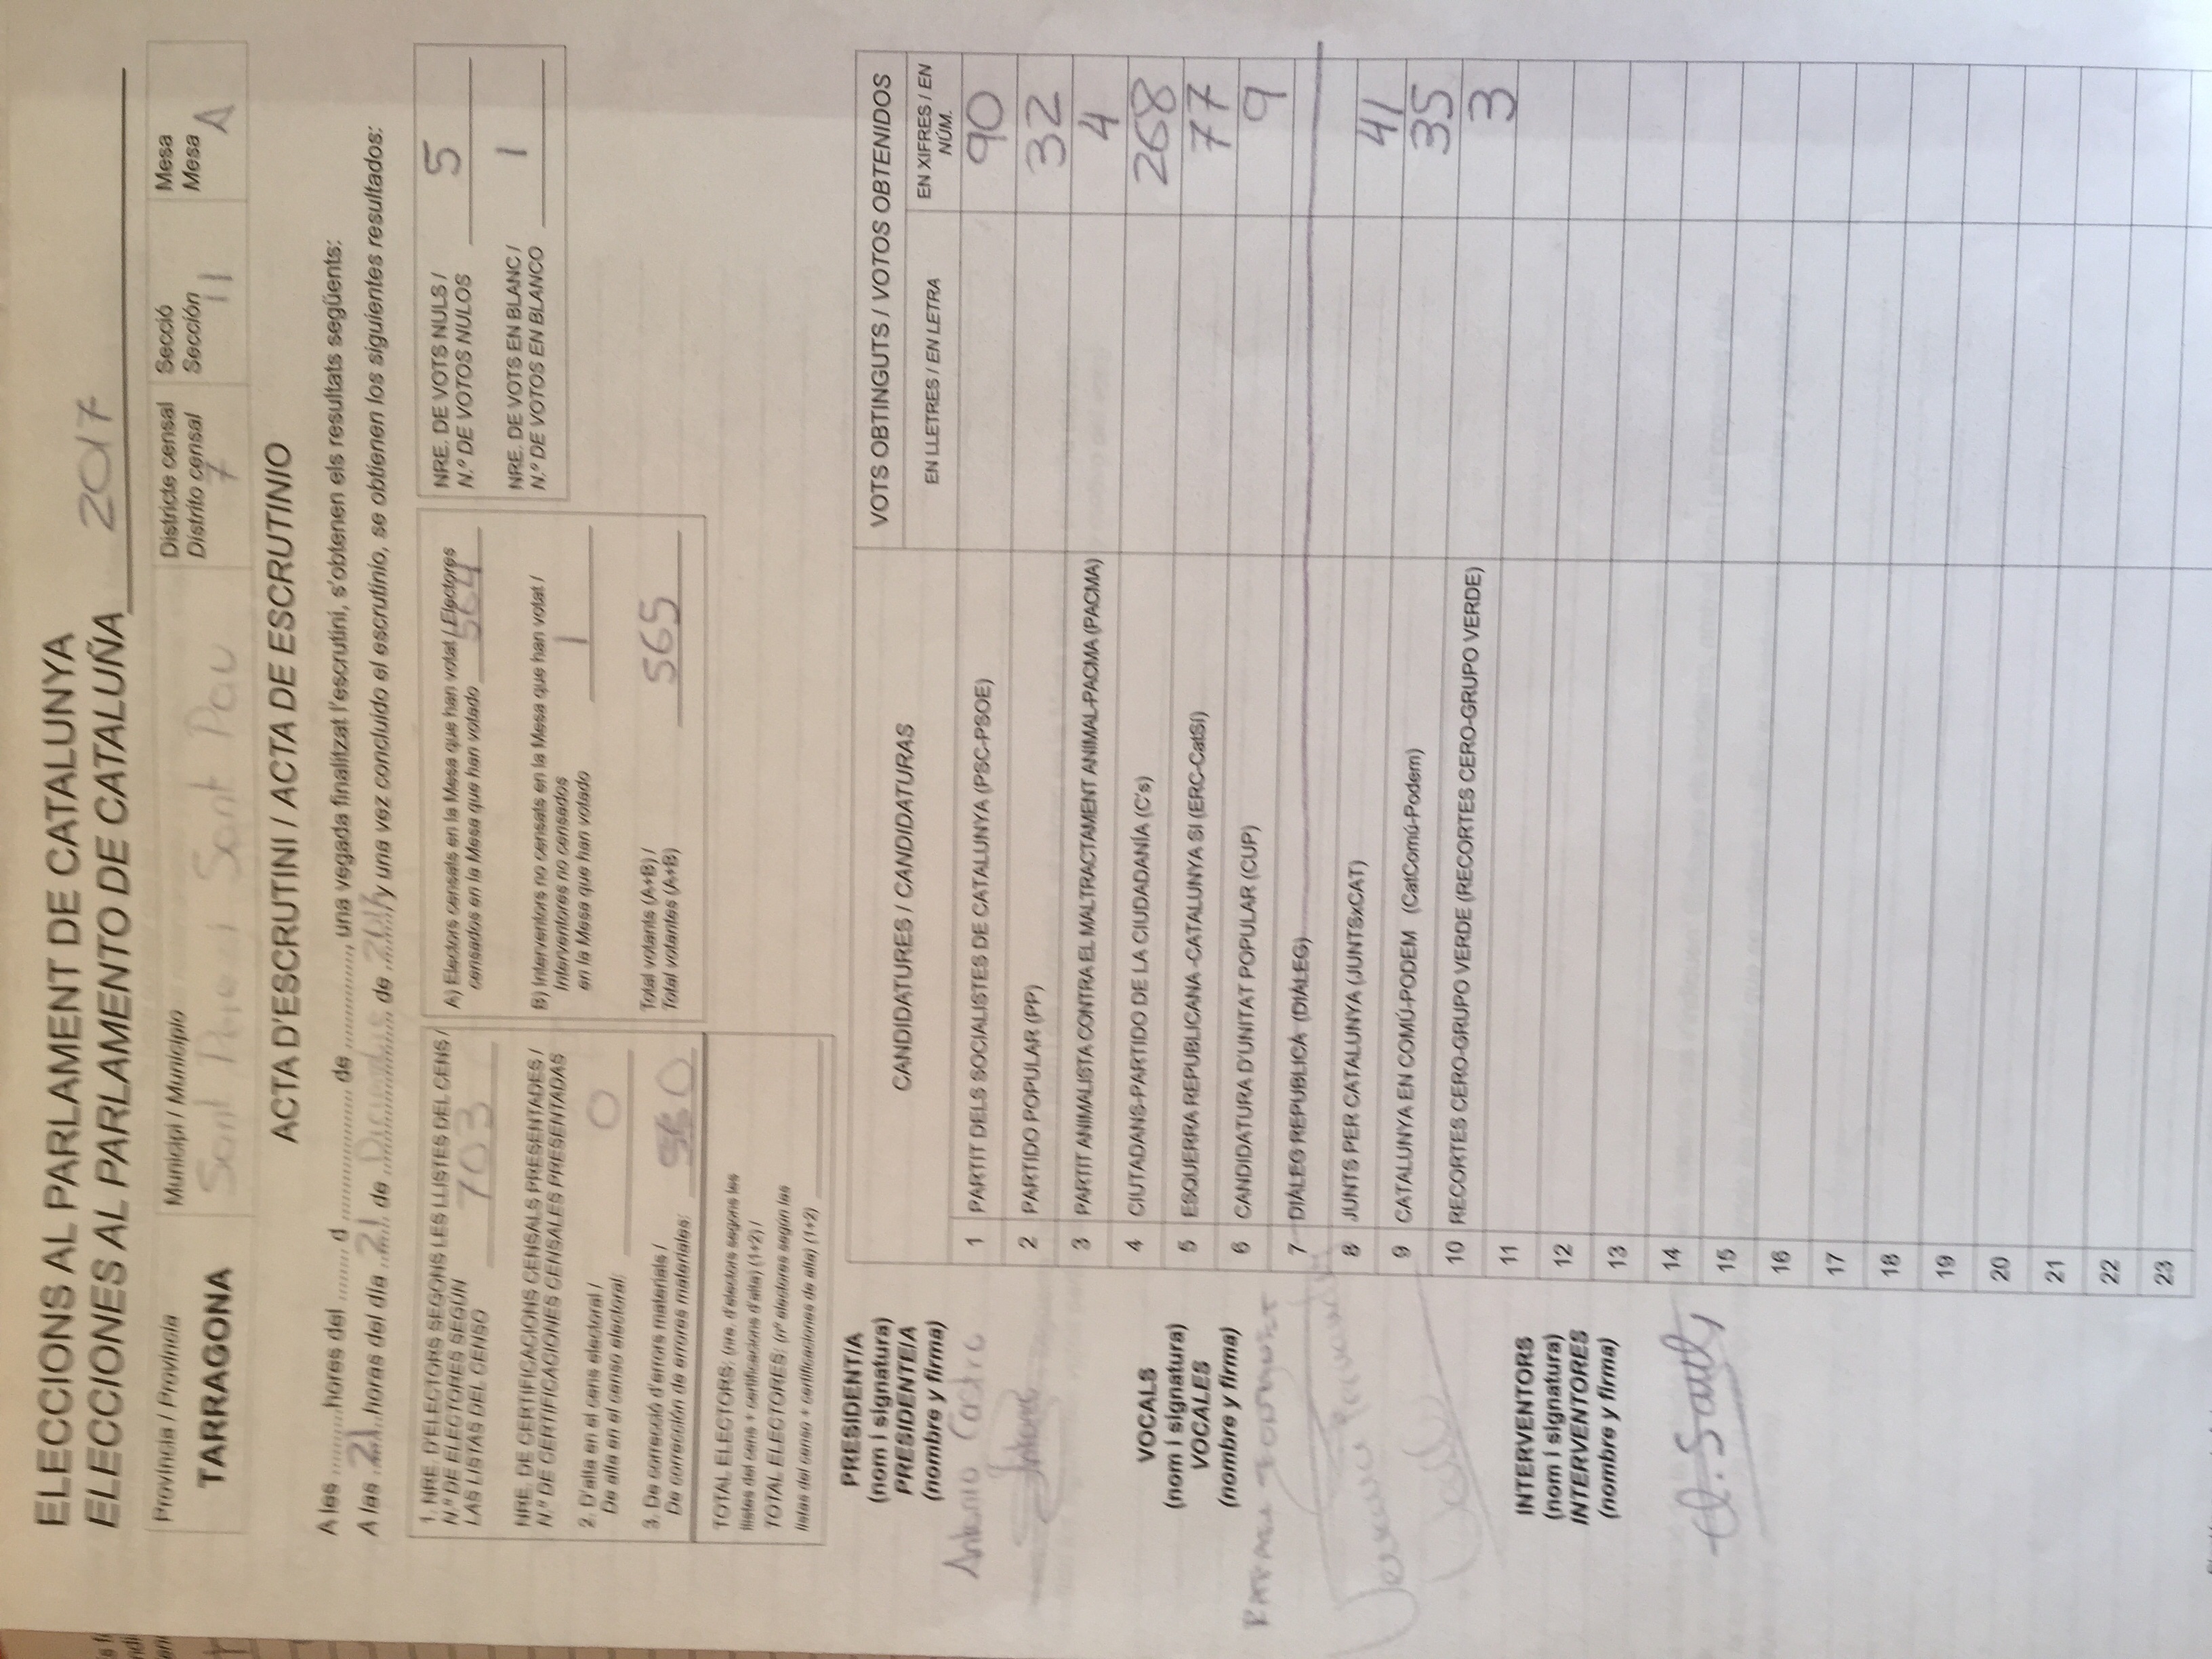 ELECCIONS AL PARLAMENT DE CATALUNYA
ELECCIONES AL PARLAMENTO DE CATALUÑA 2017
Província / Provincia
TARRAGONA
Municipi / Municipio
Sant Pere i Sant Pau
Districte censal
Distrito censal
7
Secció
Sección
11
Mesa
Mesa
A
ACTA D'ESCRUTINI / ACTA DE ESCRUTINIO
A les ..........hores del ........ d .................... de ..............., una vegada finalitzat l'escrutini, s'obtenen els resultats següents:
A las 21 horas del día 21 de Diciembre de 2017 y una vez concluido el escrutinio, se obtienen los siguientes resultados:
1. NRE. D'ELECTORS SEGONS LES LLISTES DEL CENS /
N.º DE ELECTORES SEGÚN
LAS LISTAS DEL CENSO 703
NRE. DE CERTIFICACIONS CENSALS PRESENTADES /
N.º DE CERTIFICACIONES CENSALES PRESENTADAS
2. D'alta en el cens electoral /
De alta en el censo electoral: 0
3. De correcció d'errors materials /
De corrección de errores materiales: 0
TOTAL ELECTORS: (nre. d'electors segons les
llistes del cens + certificacions d'alta) (1+2) /
TOTAL ELECTORES: (nº electores según las
listas del censo + certificaciones de alta) (1+2)
A) Electors censats en la Mesa que han votat / Electores
censados en la Mesa que han votado 564
B) Interventors no censats en la Mesa que han votat /
Interventores no censados
en la Mesa que han votado 1
Total votants (A+B) /
Total votantes (A+B) 565
NRE. DE VOTS NULS /
N.º DE VOTOS NULOS 5
NRE. DE VOTS EN BLANC /
N.º DE VOTOS EN BLANCO 1
PRESIDENT/A
(nom i signatura)
PRESIDENTE/A
(nombre y firma)
Antonio Castro
Antonio
VOCALS
(nom i signatura)
VOCALES
(nombre y firma)
INTERVENTORS
(nom i signatura)
INTERVENTORES
(nombre y firma)
CANDIDATURES / CANDIDATURAS
VOTS OBTINGUTS / VOTOS OBTENIDOS
EN LLETRES / EN LETRA
EN XIFRES / EN
NÚM.
1 PARTIT DELS SOCIALISTES DE CATALUNYA (PSC-PSOE) 90
2 PARTIDO POPULAR (PP) 32
3 PARTIT ANIMALISTA CONTRA EL MALTRACTAMENT ANIMAL-PACMA (PACMA) 4
4 CIUTADANS-PARTIDO DE LA CIUDADANÍA (C's) 268
5 ESQUERRA REPUBLICANA -CATALUNYA SI (ERC-CatSí) 77
6 CANDIDATURA D'UNITAT POPULAR (CUP) 9
7 DIÀLEG REPUBLICÀ (DIÀLEG)
8 JUNTS PER CATALUNYA (JUNTSxCAT) 41
9 CATALUNYA EN COMÚ-PODEM (CatComú-Podem) 35
10 RECORTES CERO-GRUPO VERDE (RECORTES CERO-GRUPO VERDE) 3
11
12
13
14
15
16
17
18
19
20
21
22
23